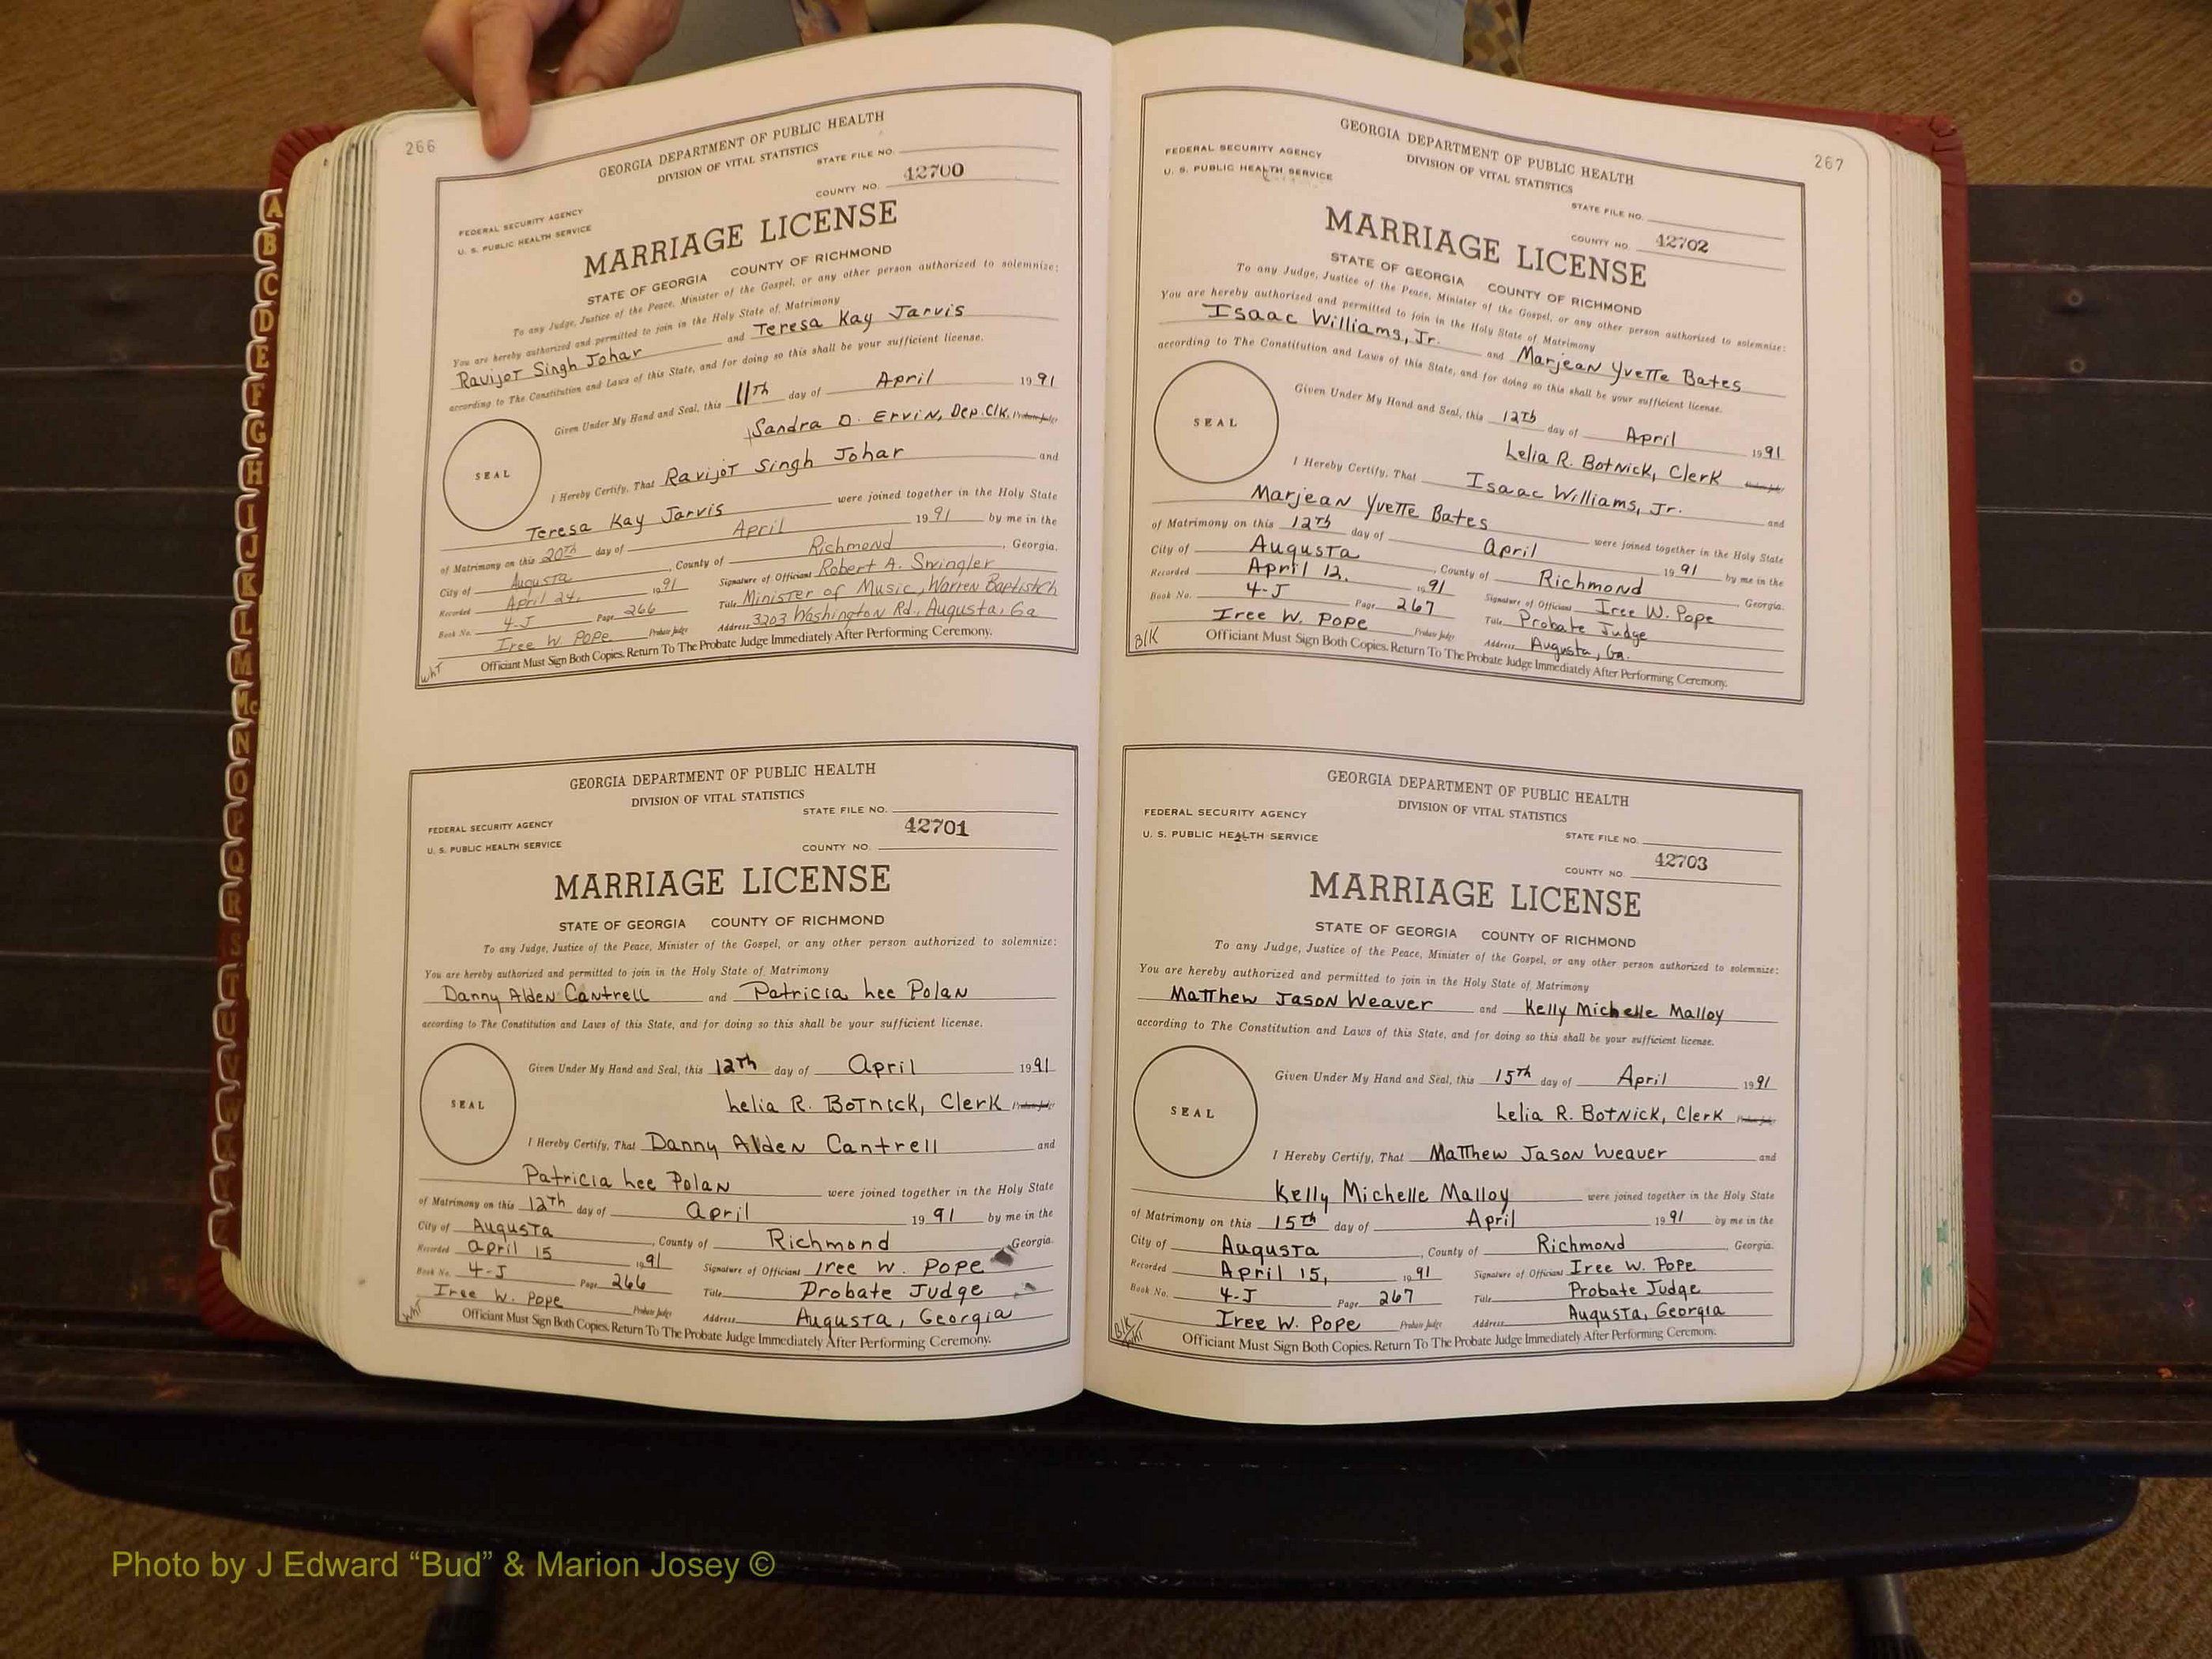 266
GEORGIA DEPARTMENT OF PUBLIC HEALTH
DIVISION OF VITAL STATISTICS
STATE FILE NO.
42700
COUNTY NO.
FEDERAL SECURITY AGENCY
U. S. PUBLIC HEALTH SERVICE
MARRIAGE LICENSE
STATE OF GEORGIA COUNTY OF RICHMOND
To any Judge, Justice of the Peace, Minister of the Gospel, or any other person authorized to solemnize:
You are hereby authorized and permitted to join in the Holy State of Matrimony
Ravijot Singh Johar and Teresa Kay Jarvis
according to The Constitution and Laws of this State, and for doing so this shall be your sufficient license.
Given Under My Hand and Seal, this 11th day of April 1991
Sandra D. Ervin, Dep. Clk. Probate Judge
SEAL
I Hereby Certify, That Ravijot Singh Johar and
Teresa Kay Jarvis were joined together in the Holy State
of Matrimony on this 20th day of April 1991 by me in the
City of Augusta, County of Richmond, Georgia.
Recorded April 24, 1991 Signature of Officiant Robert A. Swingler
Book No. 4-J Page 266 Title Minister of Music, Warren Baptist Ch
Iree W. Pope Probate Judge Address 3203 Washington Rd., Augusta, Ga
Officiant Must Sign Both Copies. Return To The Probate Judge Immediately After Performing Ceremony.
WHT
GEORGIA DEPARTMENT OF PUBLIC HEALTH
DIVISION OF VITAL STATISTICS
STATE FILE NO.
42701
FEDERAL SECURITY AGENCY
U. S. PUBLIC HEALTH SERVICE
COUNTY NO.
MARRIAGE LICENSE
STATE OF GEORGIA COUNTY OF RICHMOND
To any Judge, Justice of the Peace, Minister of the Gospel, or any other person authorized to solemnize:
You are hereby authorized and permitted to join in the Holy State of Matrimony
Danny Alden Cantrell and Patricia Lee Polan
according to The Constitution and Laws of this State, and for doing so this shall be your sufficient license.
Given Under My Hand and Seal, this 12th day of April 1991
Lelia R. Botnick, Clerk Probate Judge
SEAL
I Hereby Certify, That Danny Alden Cantrell and
Patricia Lee Polan were joined together in the Holy State
of Matrimony on this 12th day of April 1991 by me in the
City of Augusta, County of Richmond Georgia.
Recorded April 15 1991 Signature of Officiant Iree W. Pope
Book No. 4-J Page 266 Title Probate Judge
Iree W. Pope Probate Judge Address Augusta, Georgia
Officiant Must Sign Both Copies. Return To The Probate Judge Immediately After Performing Ceremony.
WHT
267
GEORGIA DEPARTMENT OF PUBLIC HEALTH
DIVISION OF VITAL STATISTICS
FEDERAL SECURITY AGENCY
U. S. PUBLIC HEALTH SERVICE
STATE FILE NO.
COUNTY NO. 42702
MARRIAGE LICENSE
STATE OF GEORGIA COUNTY OF RICHMOND
To any Judge, Justice of the Peace, Minister of the Gospel, or any other person authorized to solemnize:
You are hereby authorized and permitted to join in the Holy State of Matrimony
Isaac Williams, Jr. and Marjean Yvette Bates
according to The Constitution and Laws of this State, and for doing so this shall be your sufficient license.
Given Under My Hand and Seal, this 12th day of April 1991
Lelia R. Botnick, Clerk Probate Judge
SEAL
I Hereby Certify, That Isaac Williams, Jr. and
Marjean Yvette Bates were joined together in the Holy State
of Matrimony on this 12th day of April 1991 by me in the
City of Augusta, County of Richmond, Georgia.
Recorded April 12, 1991 Signature of Officiant Iree W. Pope
Book No. 4-J Page 267 Title Probate Judge
Iree W. Pope Probate Judge Address Augusta, Ga.
Officiant Must Sign Both Copies. Return To The Probate Judge Immediately After Performing Ceremony.
Blk
GEORGIA DEPARTMENT OF PUBLIC HEALTH
DIVISION OF VITAL STATISTICS
FEDERAL SECURITY AGENCY
U. S. PUBLIC HEALTH SERVICE
STATE FILE NO.
42703
COUNTY NO.
MARRIAGE LICENSE
STATE OF GEORGIA COUNTY OF RICHMOND
To any Judge, Justice of the Peace, Minister of the Gospel, or any other person authorized to solemnize:
You are hereby authorized and permitted to join in the Holy State of Matrimony
Matthew Jason Weaver and Kelly Michelle Malloy
according to The Constitution and Laws of this State, and for doing so this shall be your sufficient license.
Given Under My Hand and Seal, this 15th day of April 1991
Lelia R. Botnick, Clerk Probate Judge
SEAL
I Hereby Certify, That Matthew Jason Weaver and
Kelly Michelle Malloy were joined together in the Holy State
of Matrimony on this 15th day of April 1991 by me in the
City of Augusta, County of Richmond, Georgia.
Recorded April 15, 1991 Signature of Officiant Iree W. Pope
Book No. 4-J Page 267 Title Probate Judge
Iree W. Pope Probate Judge Address Augusta, Georgia
Officiant Must Sign Both Copies. Return To The Probate Judge Immediately After Performing Ceremony.
Blk/WHT
A
B
C
D
E
F
G
H
I
J
K
L
M
Mc
N
O
P
Q
R
S
T
U
V
W
Photo by J Edward “Bud” & Marion Josey ©